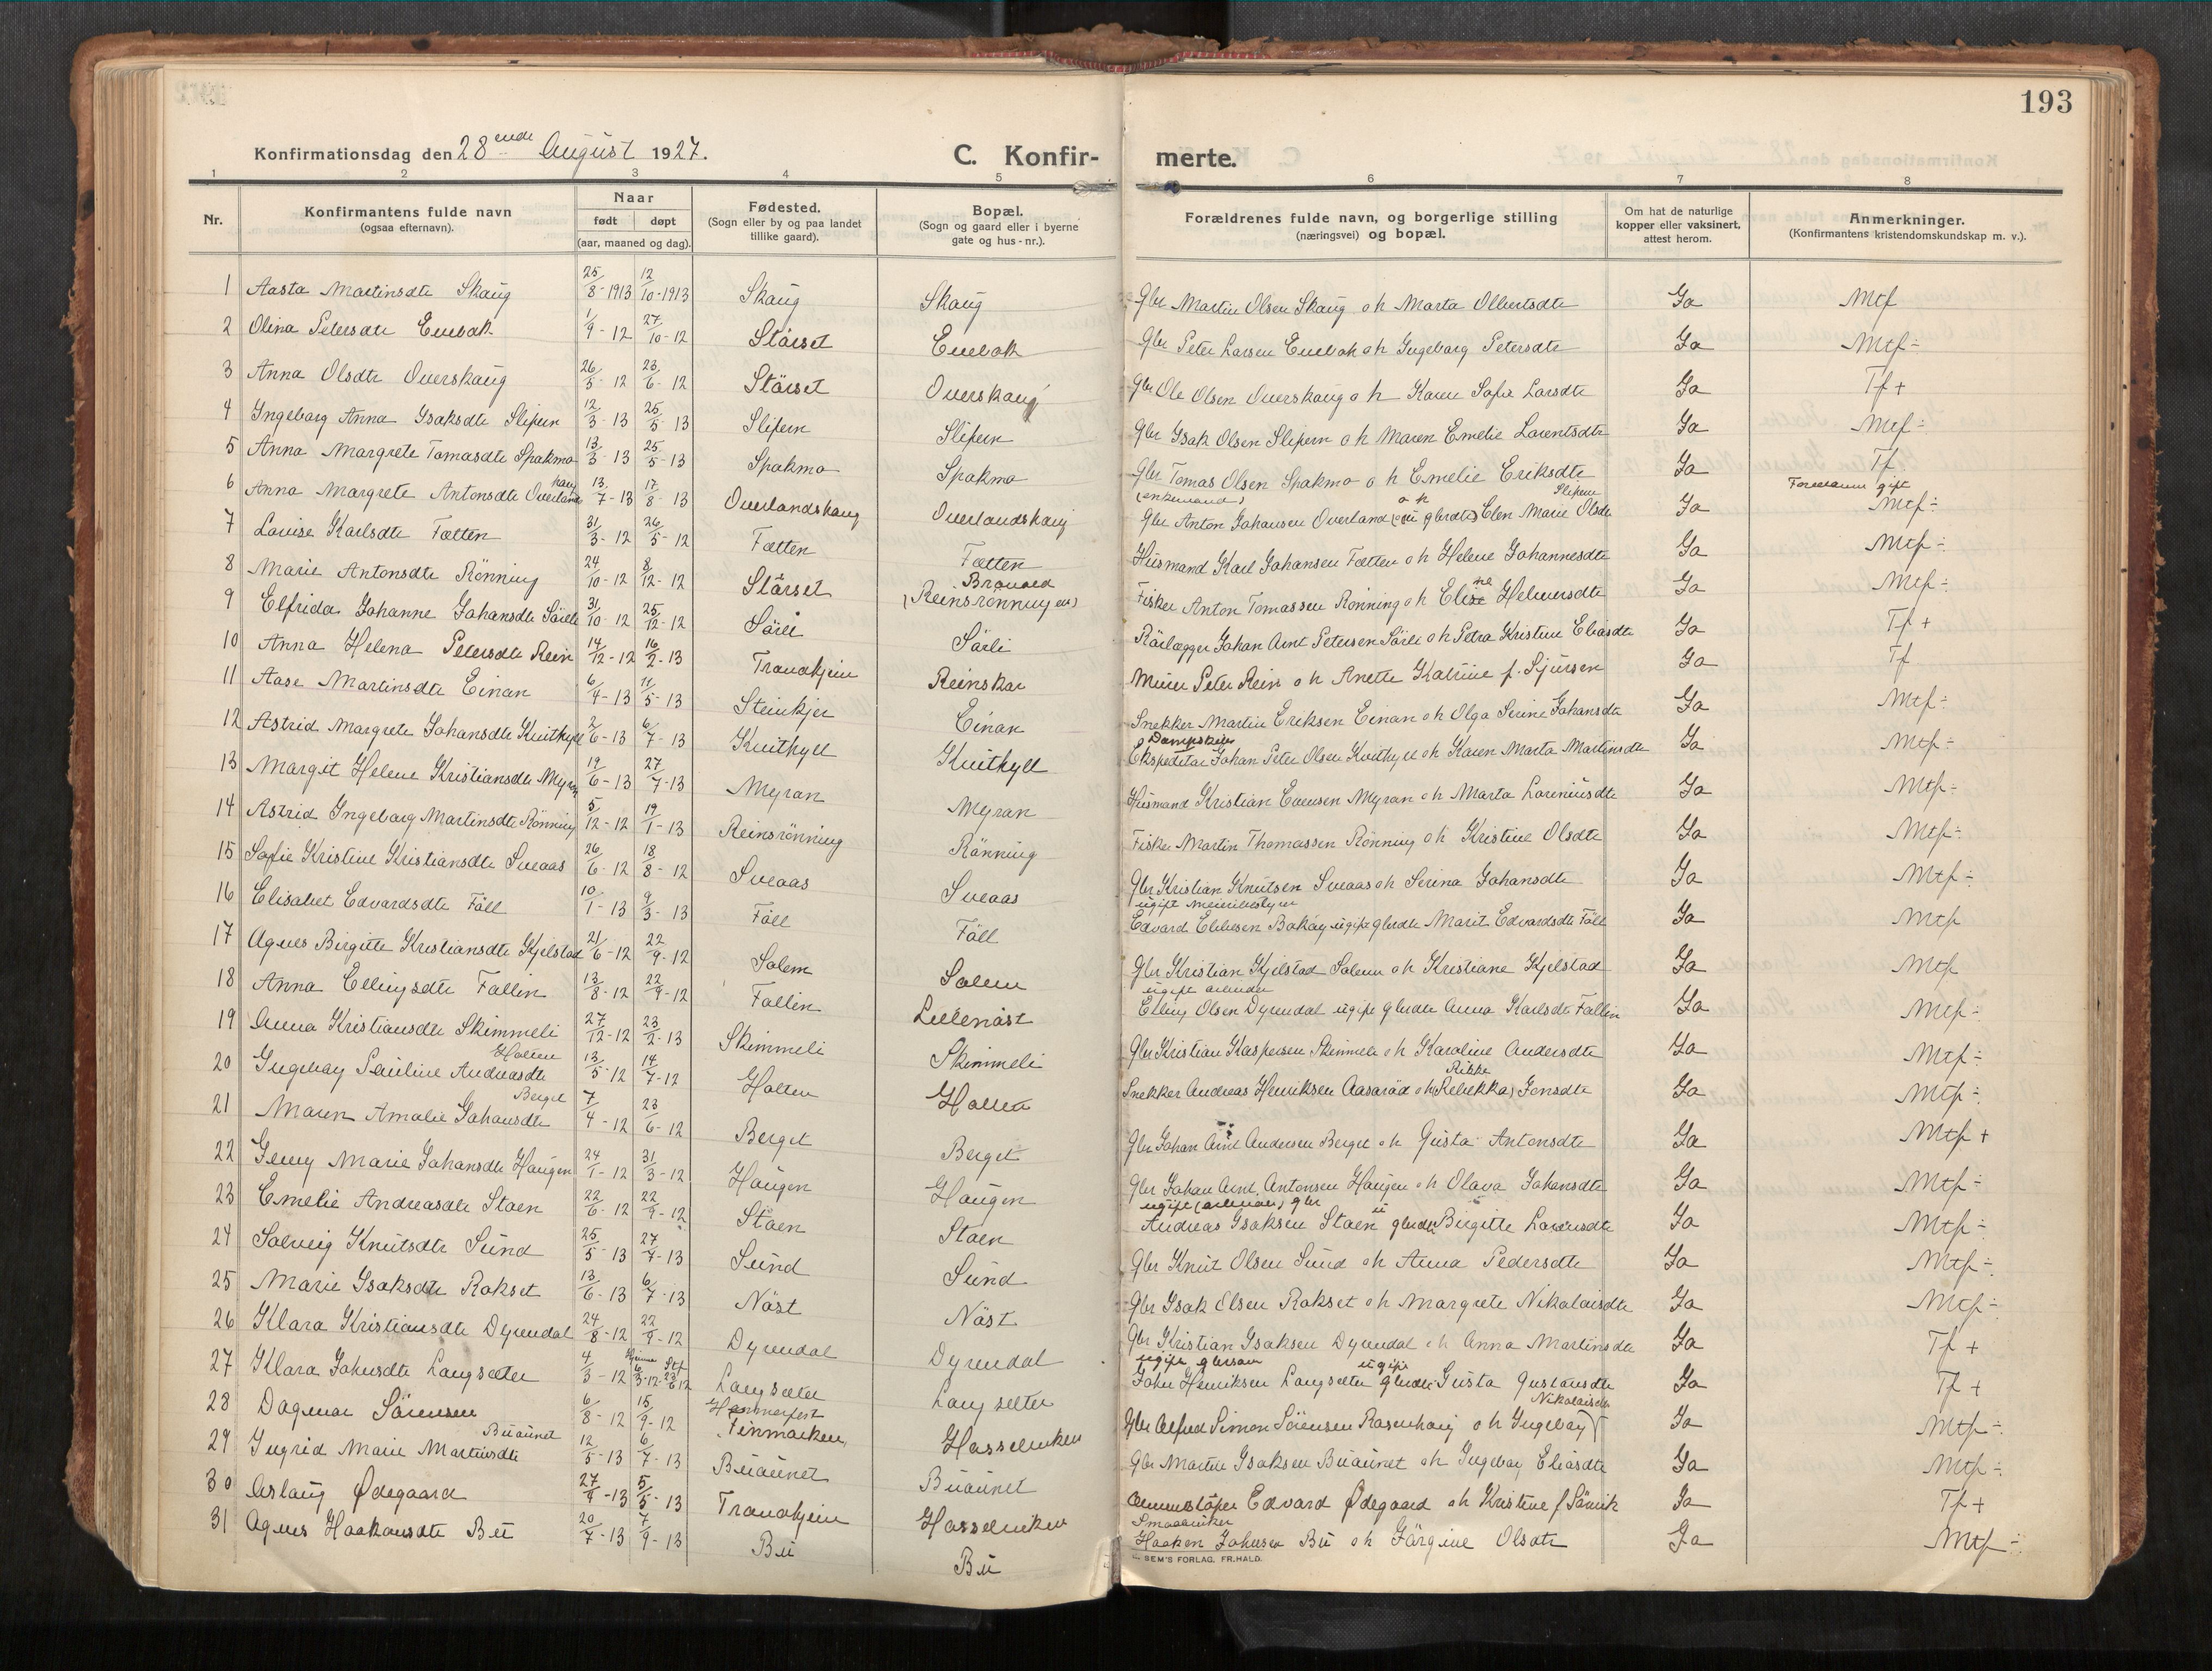 193
Konfirmationsdag den 28 ende August 1927.
C. Konfir- merte.
1 2 3 4 5 6 7 8
Nr.
Konfirmantens fulde navn
(ogsaa efternavn).
Naar
født døpt
(aar, maaned og dag).
Fødested.
(Sogn eller by og paa landet
tillike gaard).
Bopæl.
(Sogn og gaard eller i byerne
gate og hus-nr.).
Forældrenes fulde navn, og borgerlige stilling
(næringsvei) og bopæl.
Om hat de naturlige
kopper eller vaksinert,
attest herom.
Anmerkninger.
(Konfirmantens kristendomskundskap m. v.).
1 Aasta Martinsdtr Skaug 25/8-1913 12/10-1913 Skaug Skaug Gbr Martin Olsen Skaug o h Marta Olbertsdtr Ja Mtf
2 Olina Petersdtr 1/9-12 27/10-12 Störset Gbr Peter Larsen o h Ingeborg Petersdtr Ja Mtf÷
3 Anna Olsdtr Overskaug 26/5-12 23/6-12 Störset Overskaug Gbr Ole Olsen Overskaug o h Karen Sofie Larsdtr Ja Tf+
4 Ingeborg Anna Isaksdtr Slipern 12/3-13 25/5-13 Slipern Slipern Gbr Isak Olsen Slipern o h Maren Emelie Lorentsdtr Ja Mtf÷
5 Anna Margrete Tomasdtr Spakmo 13/3-13 25/5-13 Spakmo Spakmo Gbr Tomas Olsen Spakmo o h Emelie Eriksdtr Ja Tf
6 Anna Margrete Antonsdtr Overlandshaug 13/7-13 17/8-13 Overlandshaug Overlandshaug (enkemand) Gbr Anton Johansen Overland o h Elen Marie Olsdtr Slipern Ja gift Mtf÷
7 Lovise Karlsdtr Fætten 31/3-12 26/5-12 Fætten Fætten Husmand Karl Johansen Fætten o h Helene Johannesdtr Ja Mtf÷
8 Marie Antonsdtr Rönning 24/10-12 8/12-12 Störset (Reinsrönningen) Fisker Anton Tomassen Rönning o h Helmersdtr Ja Mtf÷
9 Elfrida Johanne Johansdtr Sörli 31/10-12 25/12-12 Sörli Sörli Rörlægger Johan Arnt Petersen Sörli o h Petra Kristine Eliasdtr Ja Tf+
10 Anna Helena Petersdtr Rein 14/12-12 16/2-13 Trondhjem Reinskar Murer Peter Rein o h Anette Katrine f. Sjursen Ja Tf
11 Aase Martinsdtr Einan 6/4-13 11/5-13 Steinkjer Einan Snekker Martin Eriksen Einan o h Olga Serine Johansdtr Ja Mtf÷
12 Astrid Margrete Johansdtr Kvithyll 2/6-13 6/7-13 Kvithyll Kvithyll Dampskibs Ekspeditør Johan Peter Olsen Kvithyll o h Karen Marta Martinsdtr Ja Mtf÷
13 Margit Helene Kristiansdtr Myran 19/6-13 27/7-13 Myran Myran Husmand Kristian Evensen Myran o h Marta Loreniusdtr Ja Mtf÷
14 Astrid Ingeborg Martinsdtr Rönning 5/12-12 19/1-13 Reinsrönning Rönning Fisker Martin Thomassen Rönning o h Kristine Olsdtr Ja Mtf÷
15 Sofie Kristine Kristiansdtr Sveaas 26/6-12 18/8-12 Sveaas Sveaas Gbr Kristian Knutsen Sveaas o h Serina Johansdtr Ja Mtf÷
16 Elisabet Edvardsdtr Föll 10/1-13 9/3-13 Föll Föll ugift meieribestyrer Edvard Ellevsen Bakøy ugift gbrdtr Marit Edvardsdtr Föll Ja Mtf
17 Agnes Birgitte Kristiansdtr Kjelstad 21/6-12 22/9-12 Solem Solem Gbr Kristian Kjelstad Solem o h Kristiane Kjelstad Ja Mtf
18 Anna Ellingsdtr Fallin 13/8-12 22/9-12 Fallin Lillenöst ugift arbeider Elling Olsen Dyrendal ugift gbrdtr Anna Karlsdtr Fallin Ja Mtf÷
19 Anna Kristiansdtr Skimmeli 27/12-12 23/2-13 Skimmeli Skimmeli Gbr Kristian Kaspersen Skimmeli o h Karoline Andersdtr Ja Mtf÷
20 Ingeborg Pauline Andreasdtr Holten 13/5-12 14/7-12 Holten Holten Snekker Andreas Henriksen Aasaröd o h Rikke (Rebekka) Jensdtr Ja Mtf÷
21 Maren Amalie Johansdtr Berget 7/4-12 23/6-12 Berget Berget Gbr Johan Arnt Andersen Berget o h Gusta Antonsdtr Ja Mtf+
22 Jenny Marie Johansdtr Haugen 24/1-12 31/3-12 Haugen Haugen Gbr Johan Arnt Antonsen Haugen o h Olava Johansdtr Ja Mtf÷
23 Emelie Andreasdtr Stoen 22/6-12 22/9-12 Stoen Stoen ugift gbr Andreas Isaksen Stoen gbrdtr Birgitte Lorensdtr Ja Mtf÷
24 Solveig Knutsdtr Sund 25/5-13 27/7-13 Sund Sund Gbr Knut Olsen Sund o h Anna Pedersdtr Ja Mtf÷
25 Marie Isaksdtr Rokset 13/6-13 6/7-13 Nöst Nöst Gbr Isak Olsen Rokset o h Margrete Nikolaisdtr Ja Mtf÷
26 Klara Kristiansdtr Dyrendal 24/8-12 22/9-12 Dyrendal Dyrendal Gbr Kristian Isaksen Dyrendal o h Anna Martinsdtr Ja Tf+
27 Klara Johnsdtr Langsæter 4/3-12 Hjemme 6/3-12 Stf 23/6 12 Langsæter Langsæter ugift gbrsøn John Henriksen Langsæter ugift gbrdtr Gusta Gustavsdtr Ja Tf+
28 Dagmar Sörensen 6/8-12 15/9-12 Hammerfest Finmarken Hasselvıken Gbr Alfred Simon Sörensen Rosenhaug o h Ingeborg Nikolaisdtr Ja Mtf÷
29 Ingrid Marie Martinsdtr Buaunet 12/5-13 6/7-13 Buaunet Buaunet Gbr Martin Isaksen Buaunet o h Ingeborg Eliasdtr Ja Mtf÷
30 Aslaug Ødegaard 27/4-13 5/5-13 Trondhjem Hasselviken Edvard Ødegaard o h Kristine f Sörvik Ja Tf+
31 Agnes Haakonsdtr Bü 20/7-13 7/9-13 Bü Bü Smaabruker Haakon Johnsen Bü o h Jörgine Olsdtr Ja Mtf÷
SEM'S FORLAG, FR.HALD.